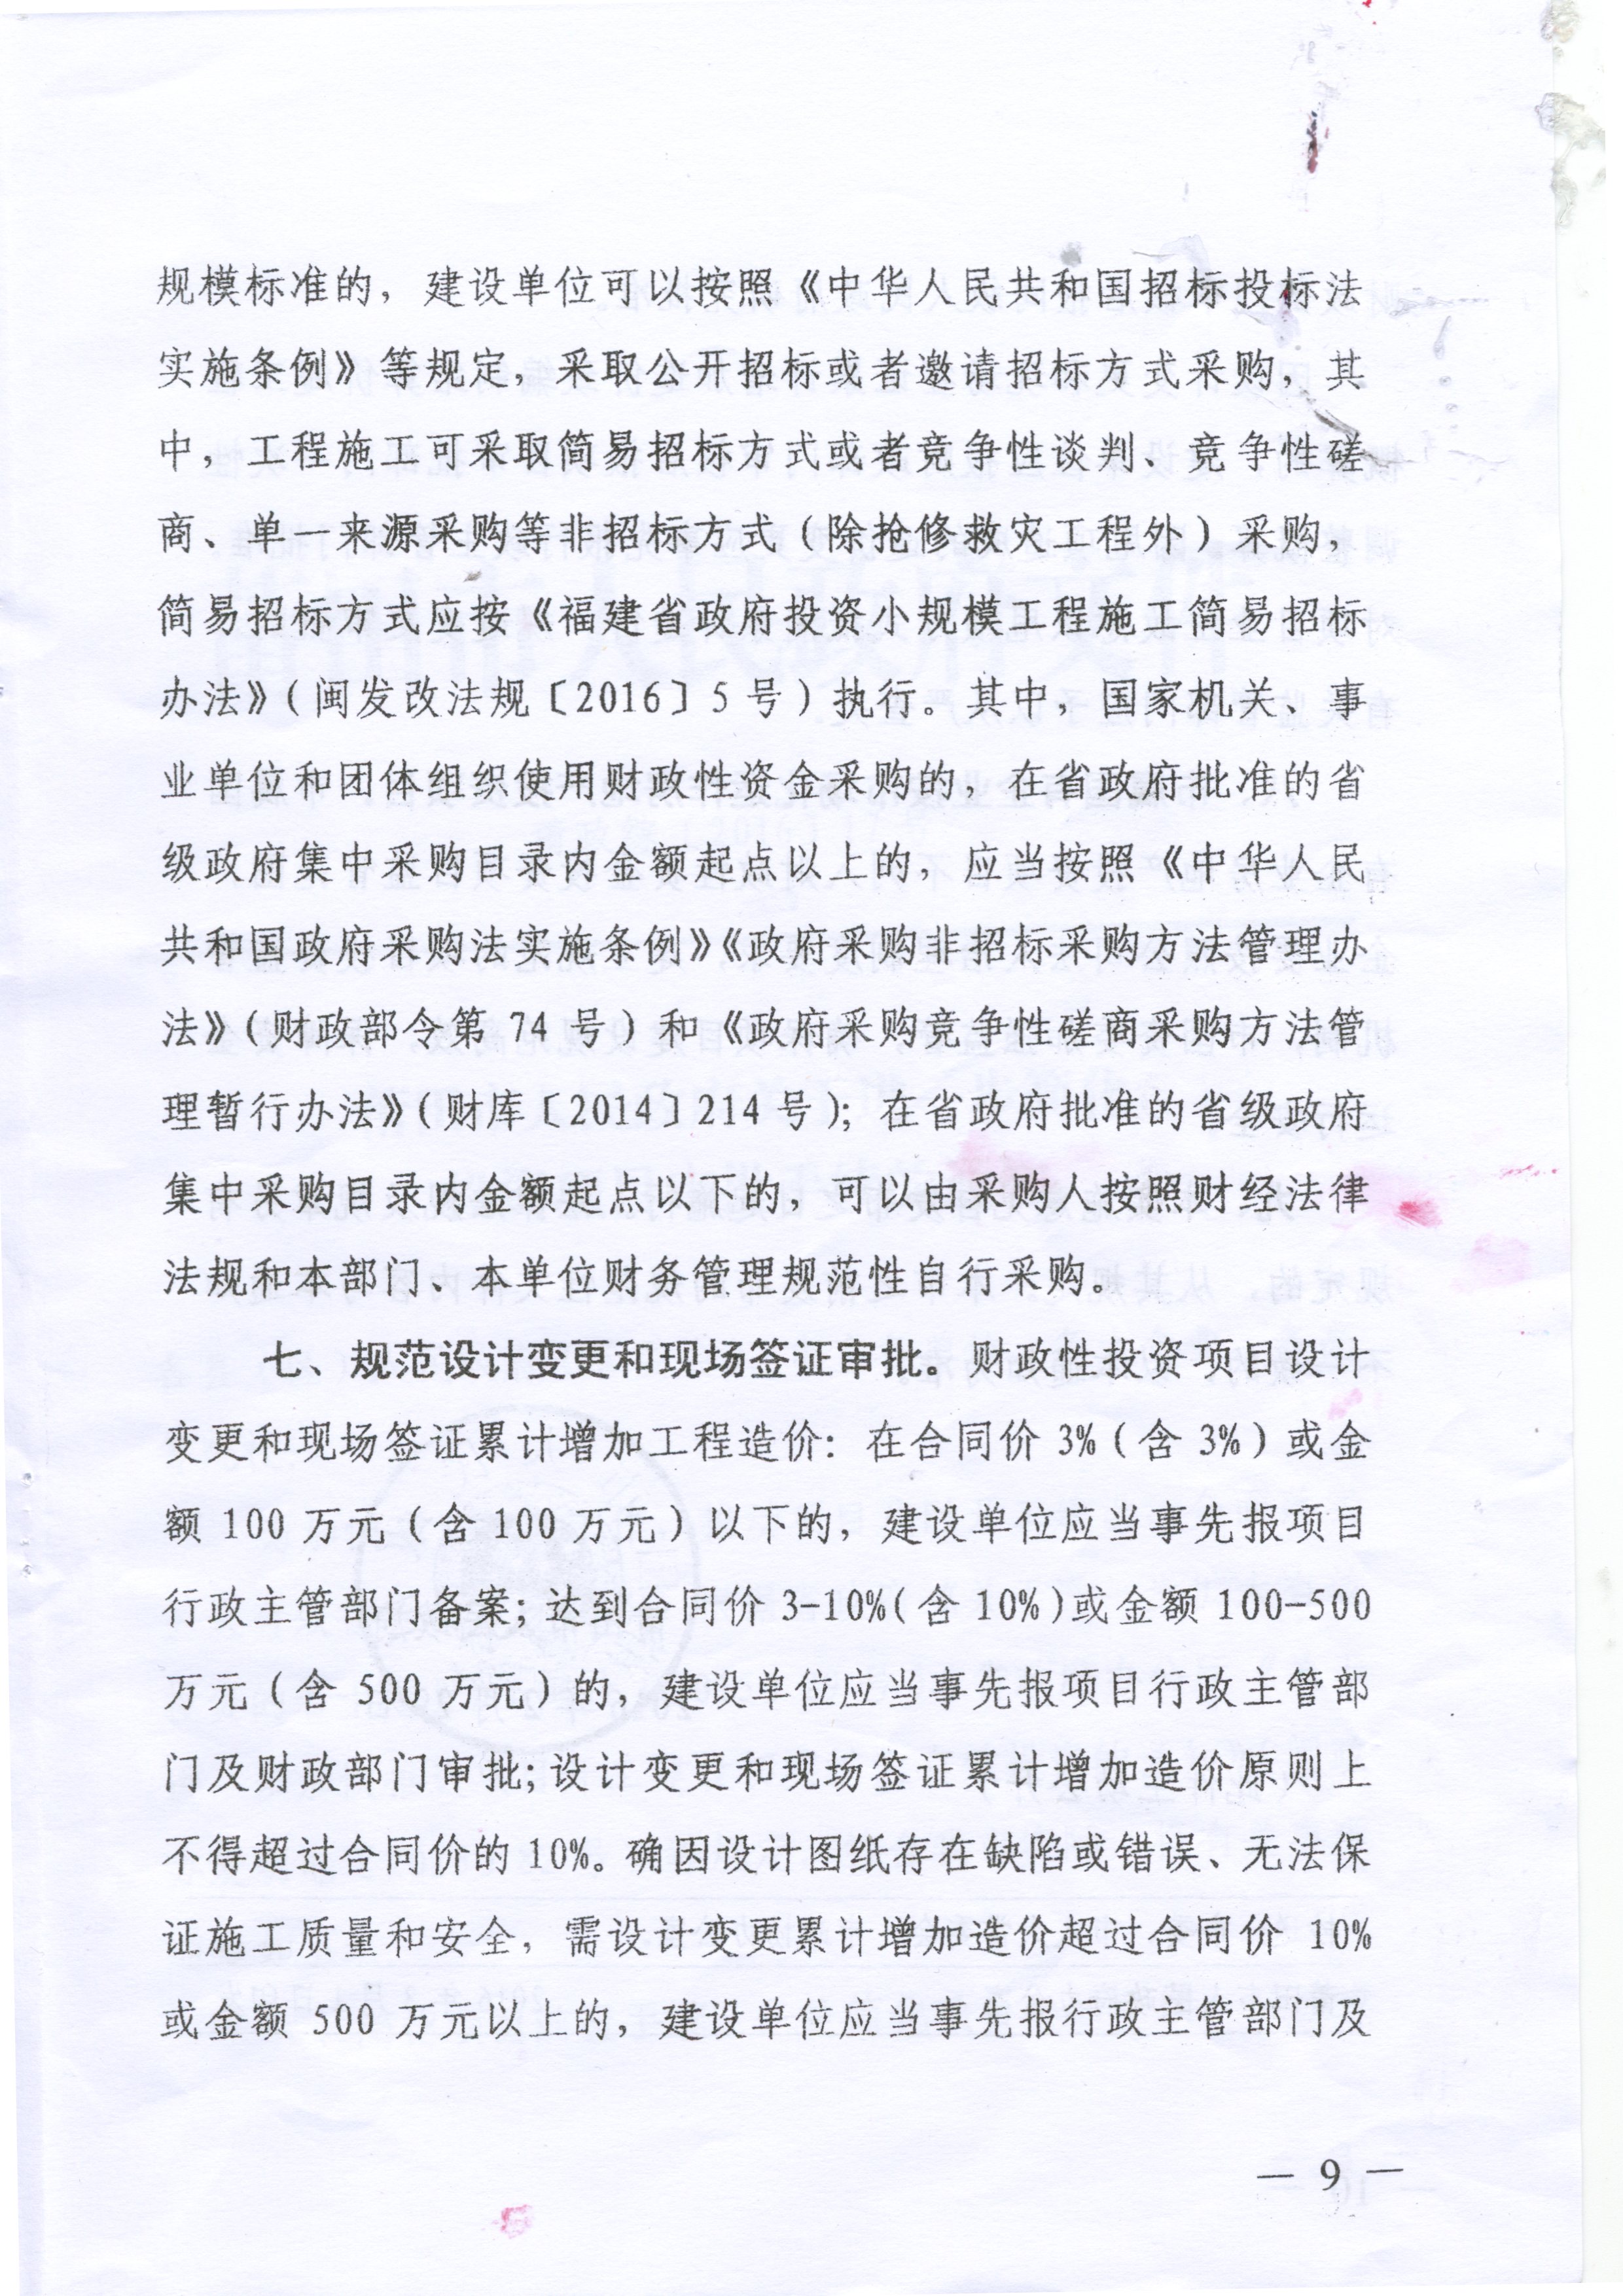 规模标准的，建设单位可以按照《中华人民共和国招标投标法
实施条例》等规定，采取公开招标或者邀请招标方式采购，其
中，工程施工可采取简易招标方式或者竞争性谈判、竞争性磋
商、单一来源采购等非招标方式（除抢修救灾工程外）采购，
简易招标方式应按《福建省政府投资小规模工程施工简易招标
办法》（闽发改法规〔2016〕5号）执行。其中，国家机关、事
业单位和团体组织使用财政性资金采购的，在省政府批准的省
级政府集中采购目录内金额起点以上的，应当按照《中华人民
共和国政府采购法实施条例》《政府采购非招标采购方法管理办
法》（财政部令第 74 号）和《政府采购竞争性磋商采购方法管
理暂行办法》（财库〔2014〕214号）；在省政府批准的省级政府
集中采购目录内金额起点以下的，可以由采购人按照财经法律
法规和本部门、本单位财务管理规范性自行采购。
七、规范设计变更和现场签证审批。财政性投资项目设计
变更和现场签证累计增加工程造价：在合同价 3%（含 3%）或金
额 100 万元（含 100 万元）以下的，建设单位应当事先报项目
行政主管部门备案；达到合同价 3-10%（含 10%）或金额 100-500
万元（含 500 万元）的，建设单位应当事先报项目行政主管部
门及财政部门审批；设计变更和现场签证累计增加造价原则上
不得超过合同价的 10%。确因设计图纸存在缺陷或错误、无法保
证施工质量和安全，需设计变更累计增加造价超过合同价 10%
或金额 500 万元以上的，建设单位应当事先报行政主管部门及
— 9 —